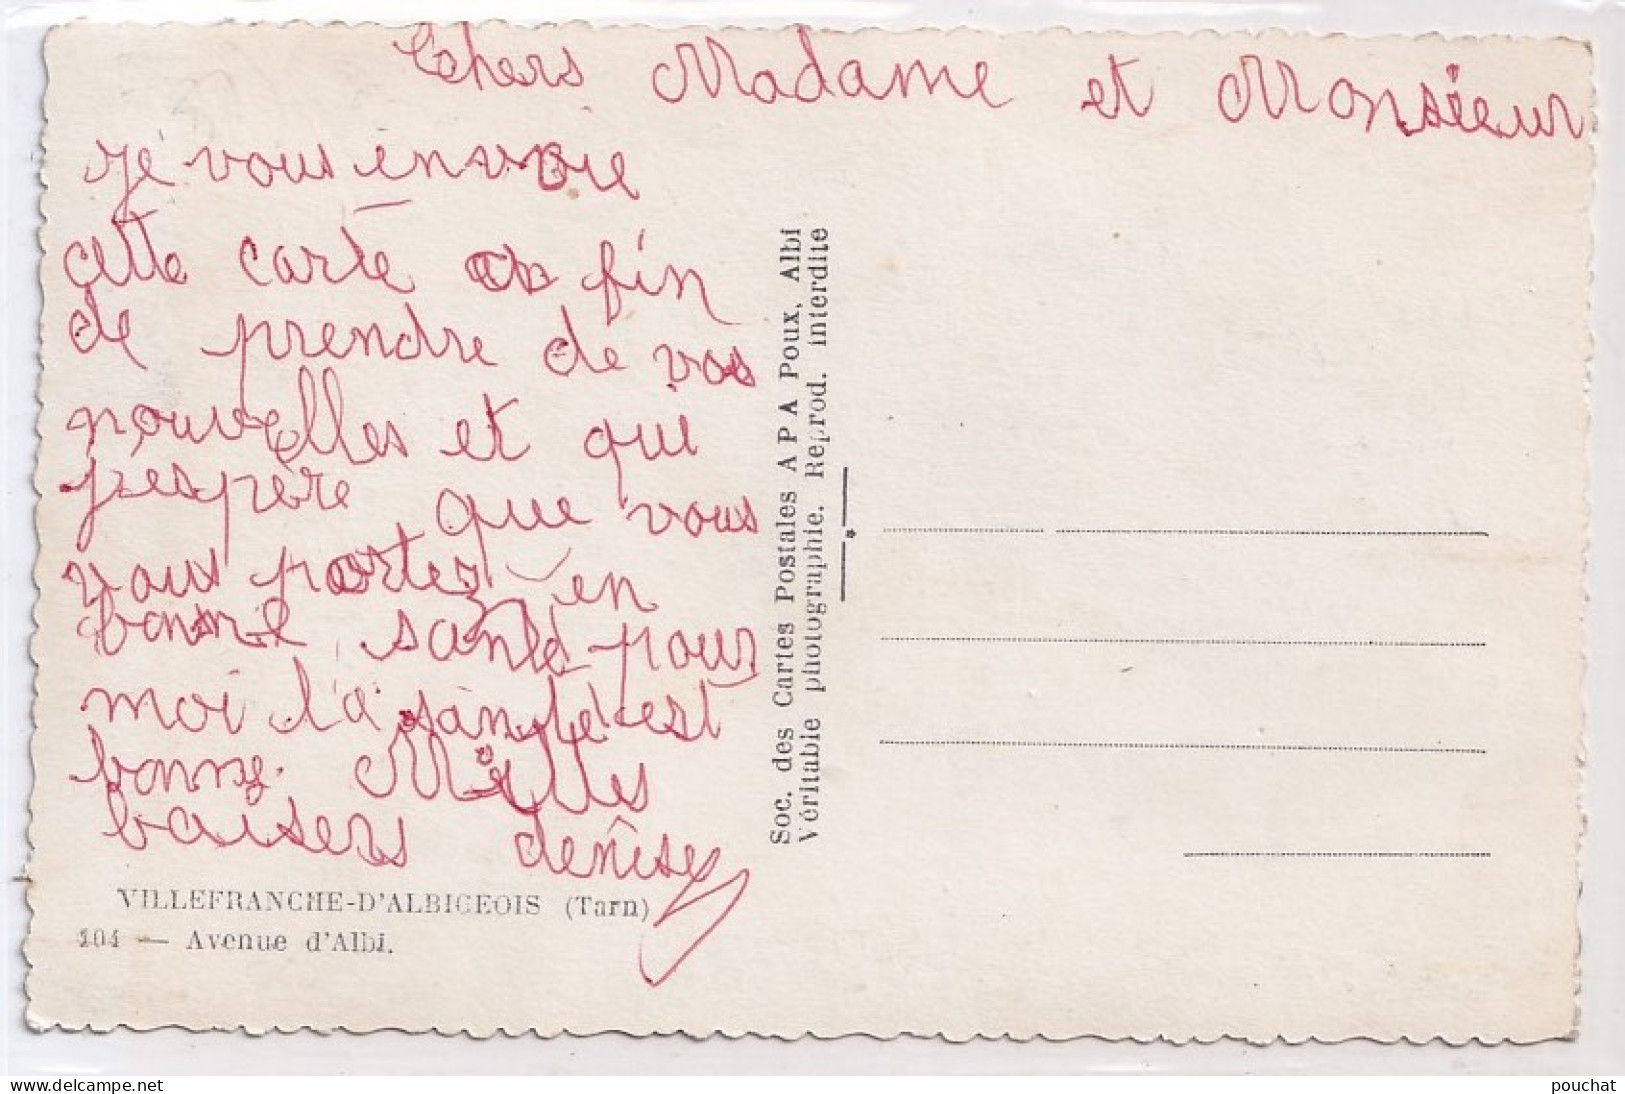 Chers Madame et Monsieur
je vous envoie
cette carte a fin
de prendre de vos
nouvelles et qui
j'espère que vous
vous portez en
bonne santé pour
moi la santé est
bonne. Milles
baisers denise
VILLEFRANCHE-D'ALBIGEOIS (Tarn)
104 — Avenue d'Albi.
Soc. des Cartes Postales A P A Poux, Albi
Véritable photographie. Reprod. interdite
delcampe.net
pouchat